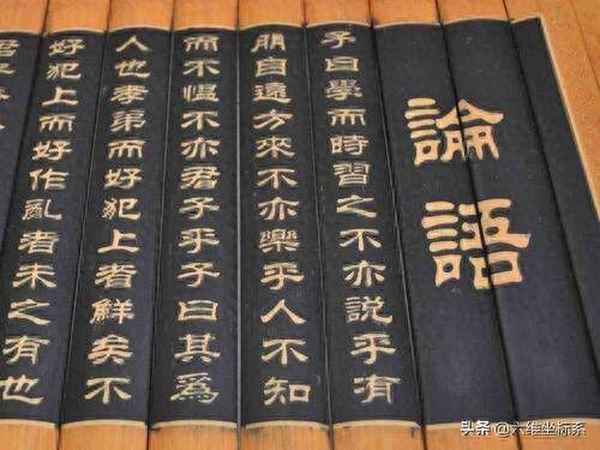 論語
子曰學而時習之不亦說乎有
朋自遠方來不亦樂乎人不知
而不慍不亦君子乎子曰其爲
人也孝弟而好犯上者鮮矣不
好犯上而好作亂者未之有也
头条 @六维坐标系